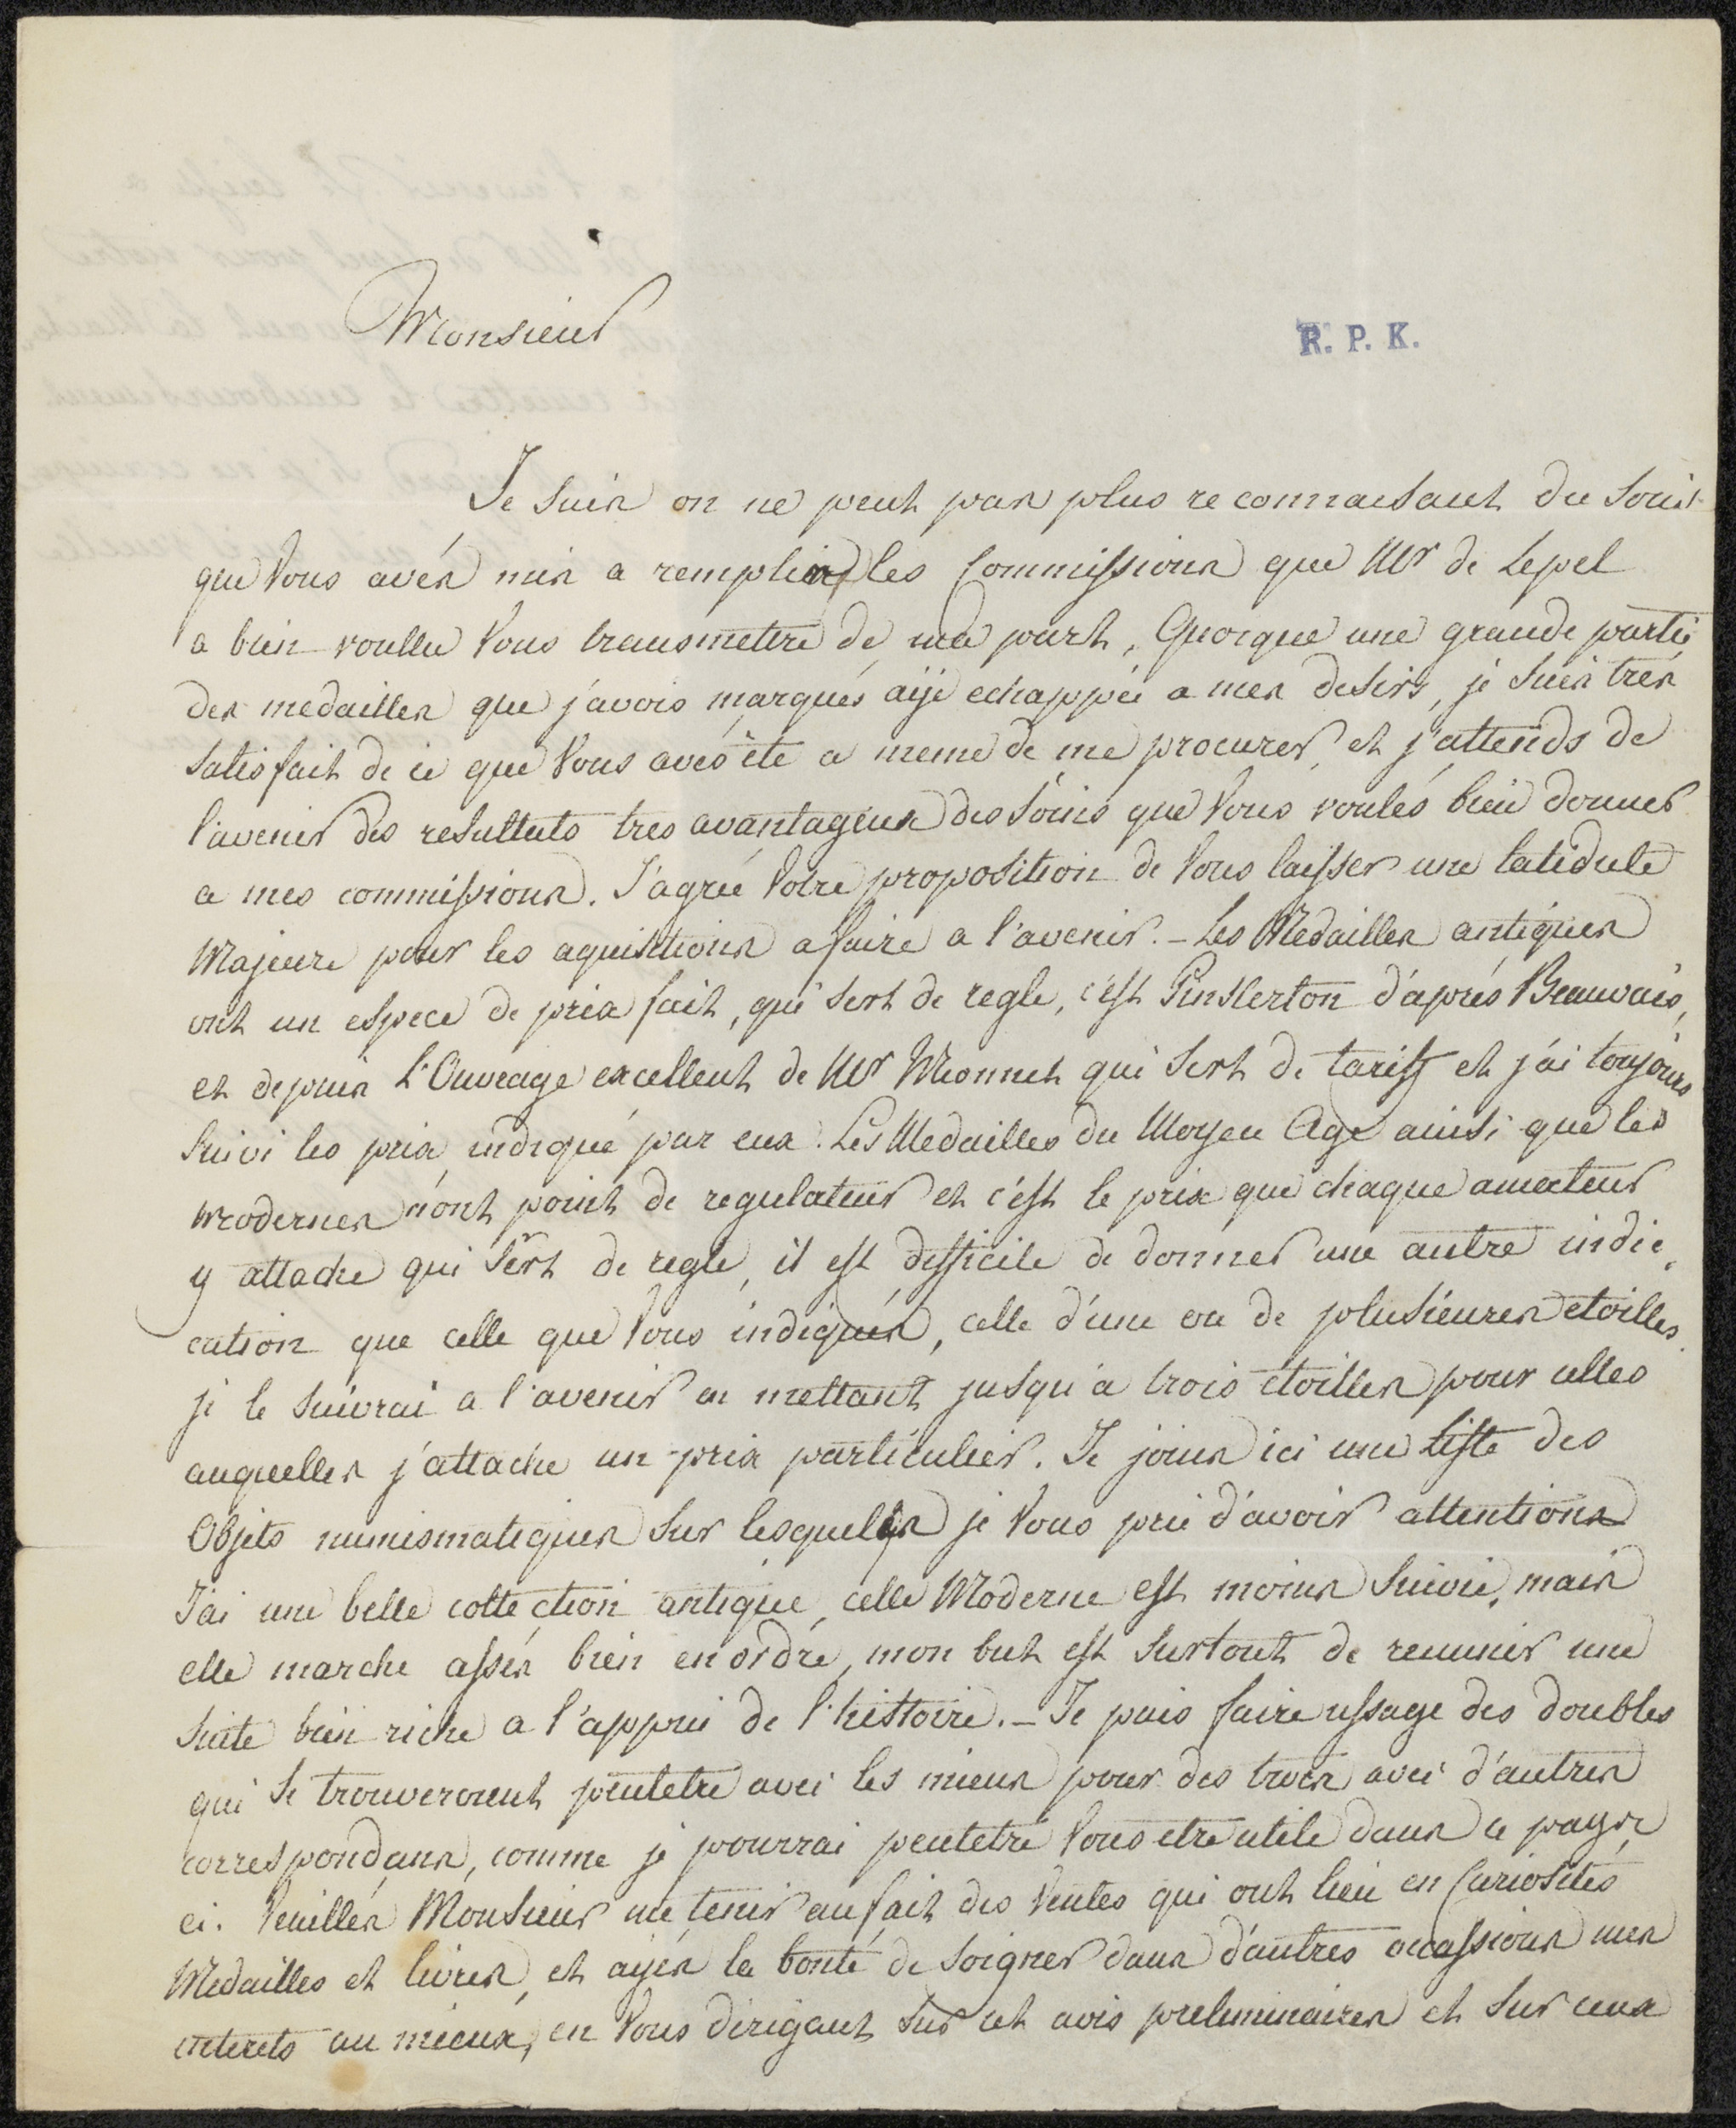 Monsieur
R. P. K.
Je suis on ne peut pas plus reconnaissant du soin
que Vous avés mis a remplir les Commissions que Mr de Lepel
a bien voullu Vous transmettre de ma part, Quoique une grande partie
des medailles que j'avois marqués aije echappée a mes desirs, je suis trés
satisfait de ce que Vous avés été a meme de me procurer, et j'attends de
l'avenir des resultats tres avantageux des soins que Vous voulés bien donner
a mes commissions. J'agrée Votre proposition de Vous laisser une latidute
Majeure pour les aquisitions a faire a l'avenir. - Les Medailles antiques
ont un espece de prix fait, qui sert de regle, c'est Pinkerton d'après Beauvais,
et depuis L'Ouvrage excellent de Mr Mionnet qui sert de tariff et j'ai toujours
suivi les prix indiqué par eux. Les Medailles du Moyen Age ainsi que les
modernes n'ont point de regulateur et c'est le prix que chaque amateur
y attache qui sert de regle, il est difficile de donner une autre indi-
cation que celle que Vous indiqués, celle d'une ou de plusieures etoilles.
je le suivrai a l'avenir en mettant jusqu'a trois étoilles pour celles
auquelles j'attache un prix particulier. Je joins ici une Liste des
Objets numismatiques sur lesquels je Vous prie d'avoir attention
J'ai une belle collection antique, celle Moderne est moins suivie, mais
elle marche assés bien en ordre, mon but est surtout de reunir une
suite bien riche a l'appui de l'histoire. - Je puis faire ussage des doubles
qui se trouveroient peutetre avec les mieux pour des trocs avec d'autres
correspondans, comme je pourrai peutetre Vous etre utile dans ce pays
ci. Veuilléz Monsieur me tenir au fait des Ventes qui ont lieu en Curiosités
Medailles et livres, et ayés la bonté de soigner dans d'autres occassions mes
interets au mieux, en Vous dirigant sur cet avis preliminaires et sur ceux